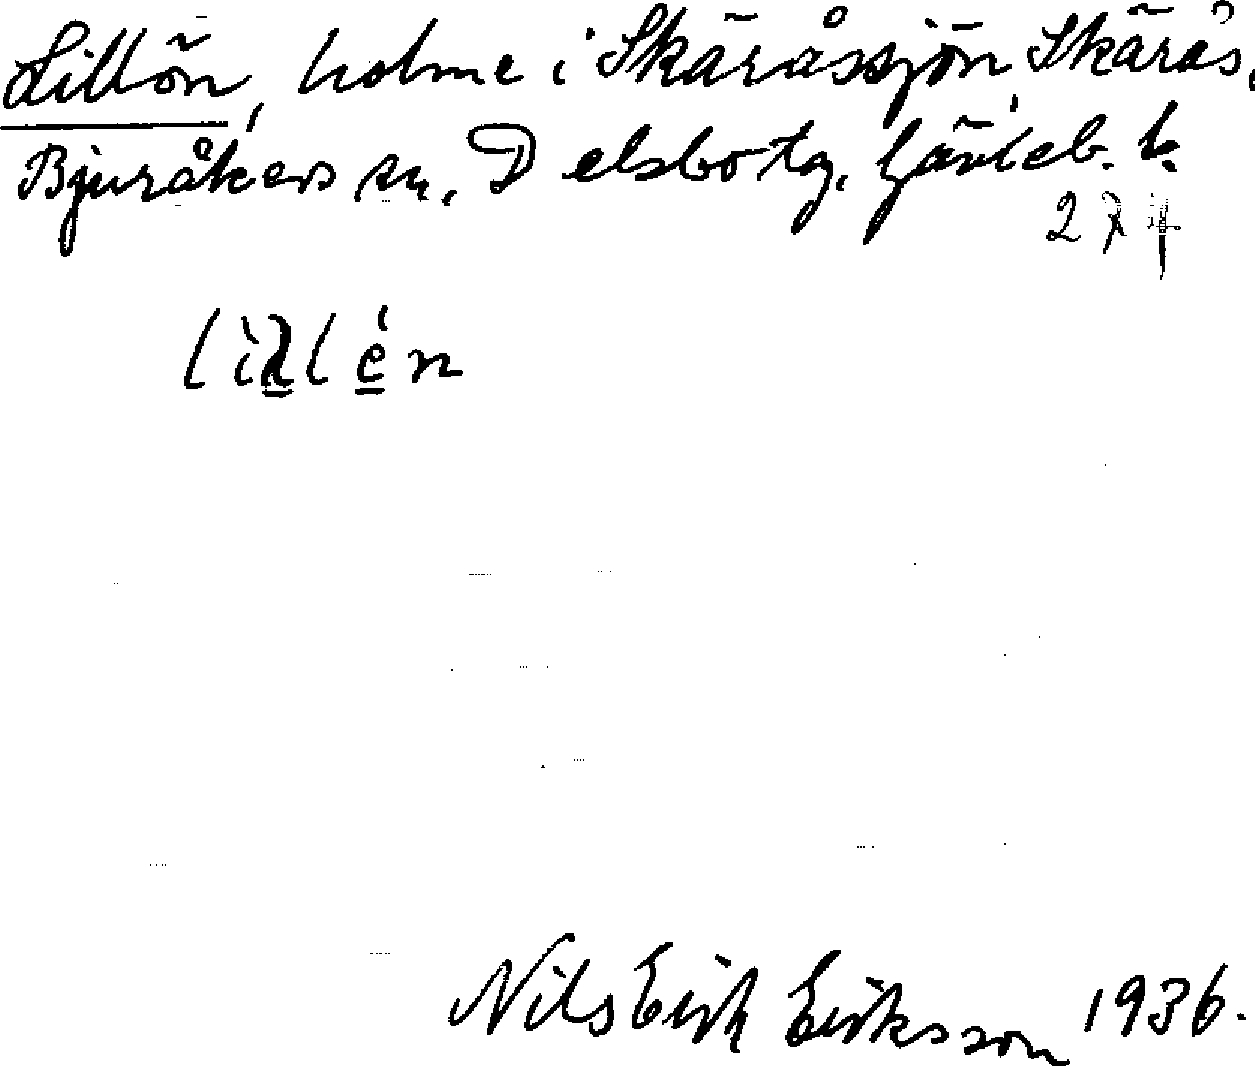 Lillön, holme i Skäråssjön, Skärås,
Bjuråkers sn, Delsbo tg, Gävleb. l.
lillén
Nils Erik Eriksson 1936.